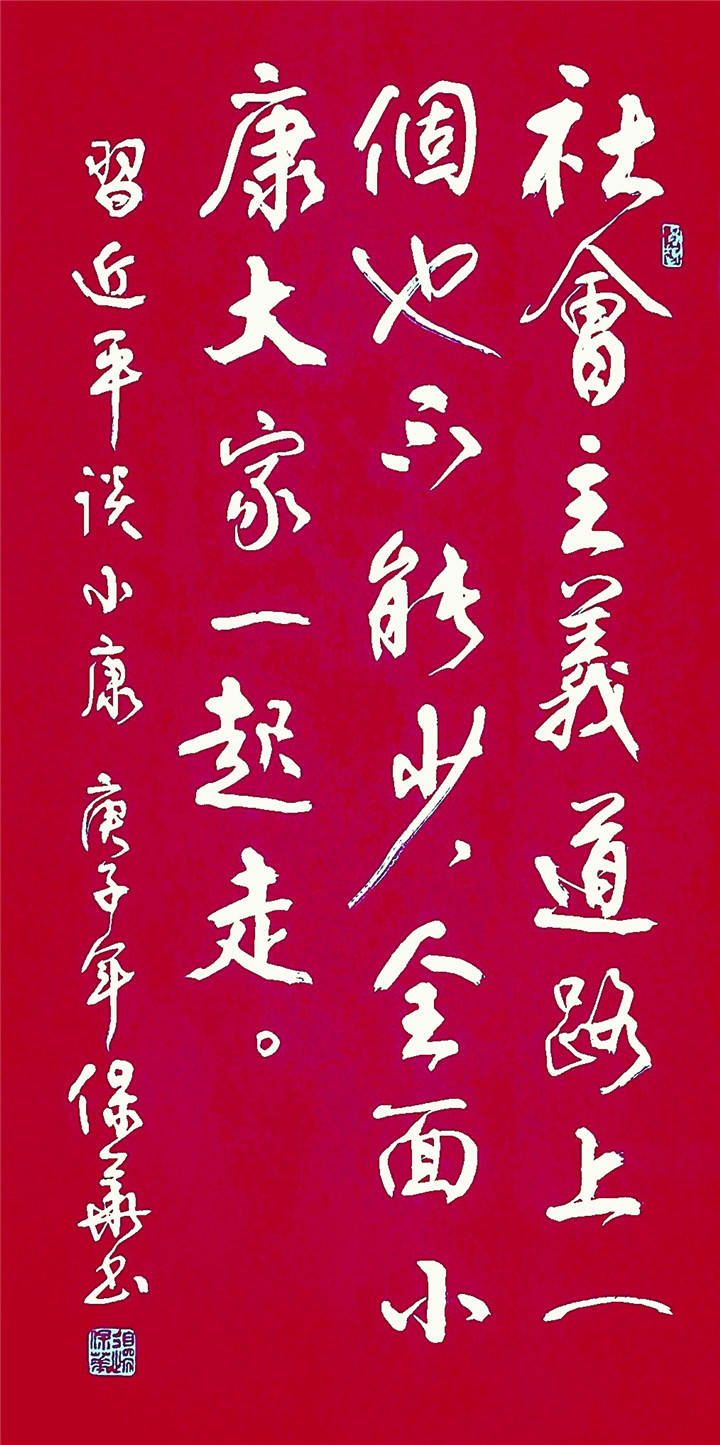 社會主義道路上一
個也不能少，全面小
康大家一起走。
習近平谈小康 庚子年保華书